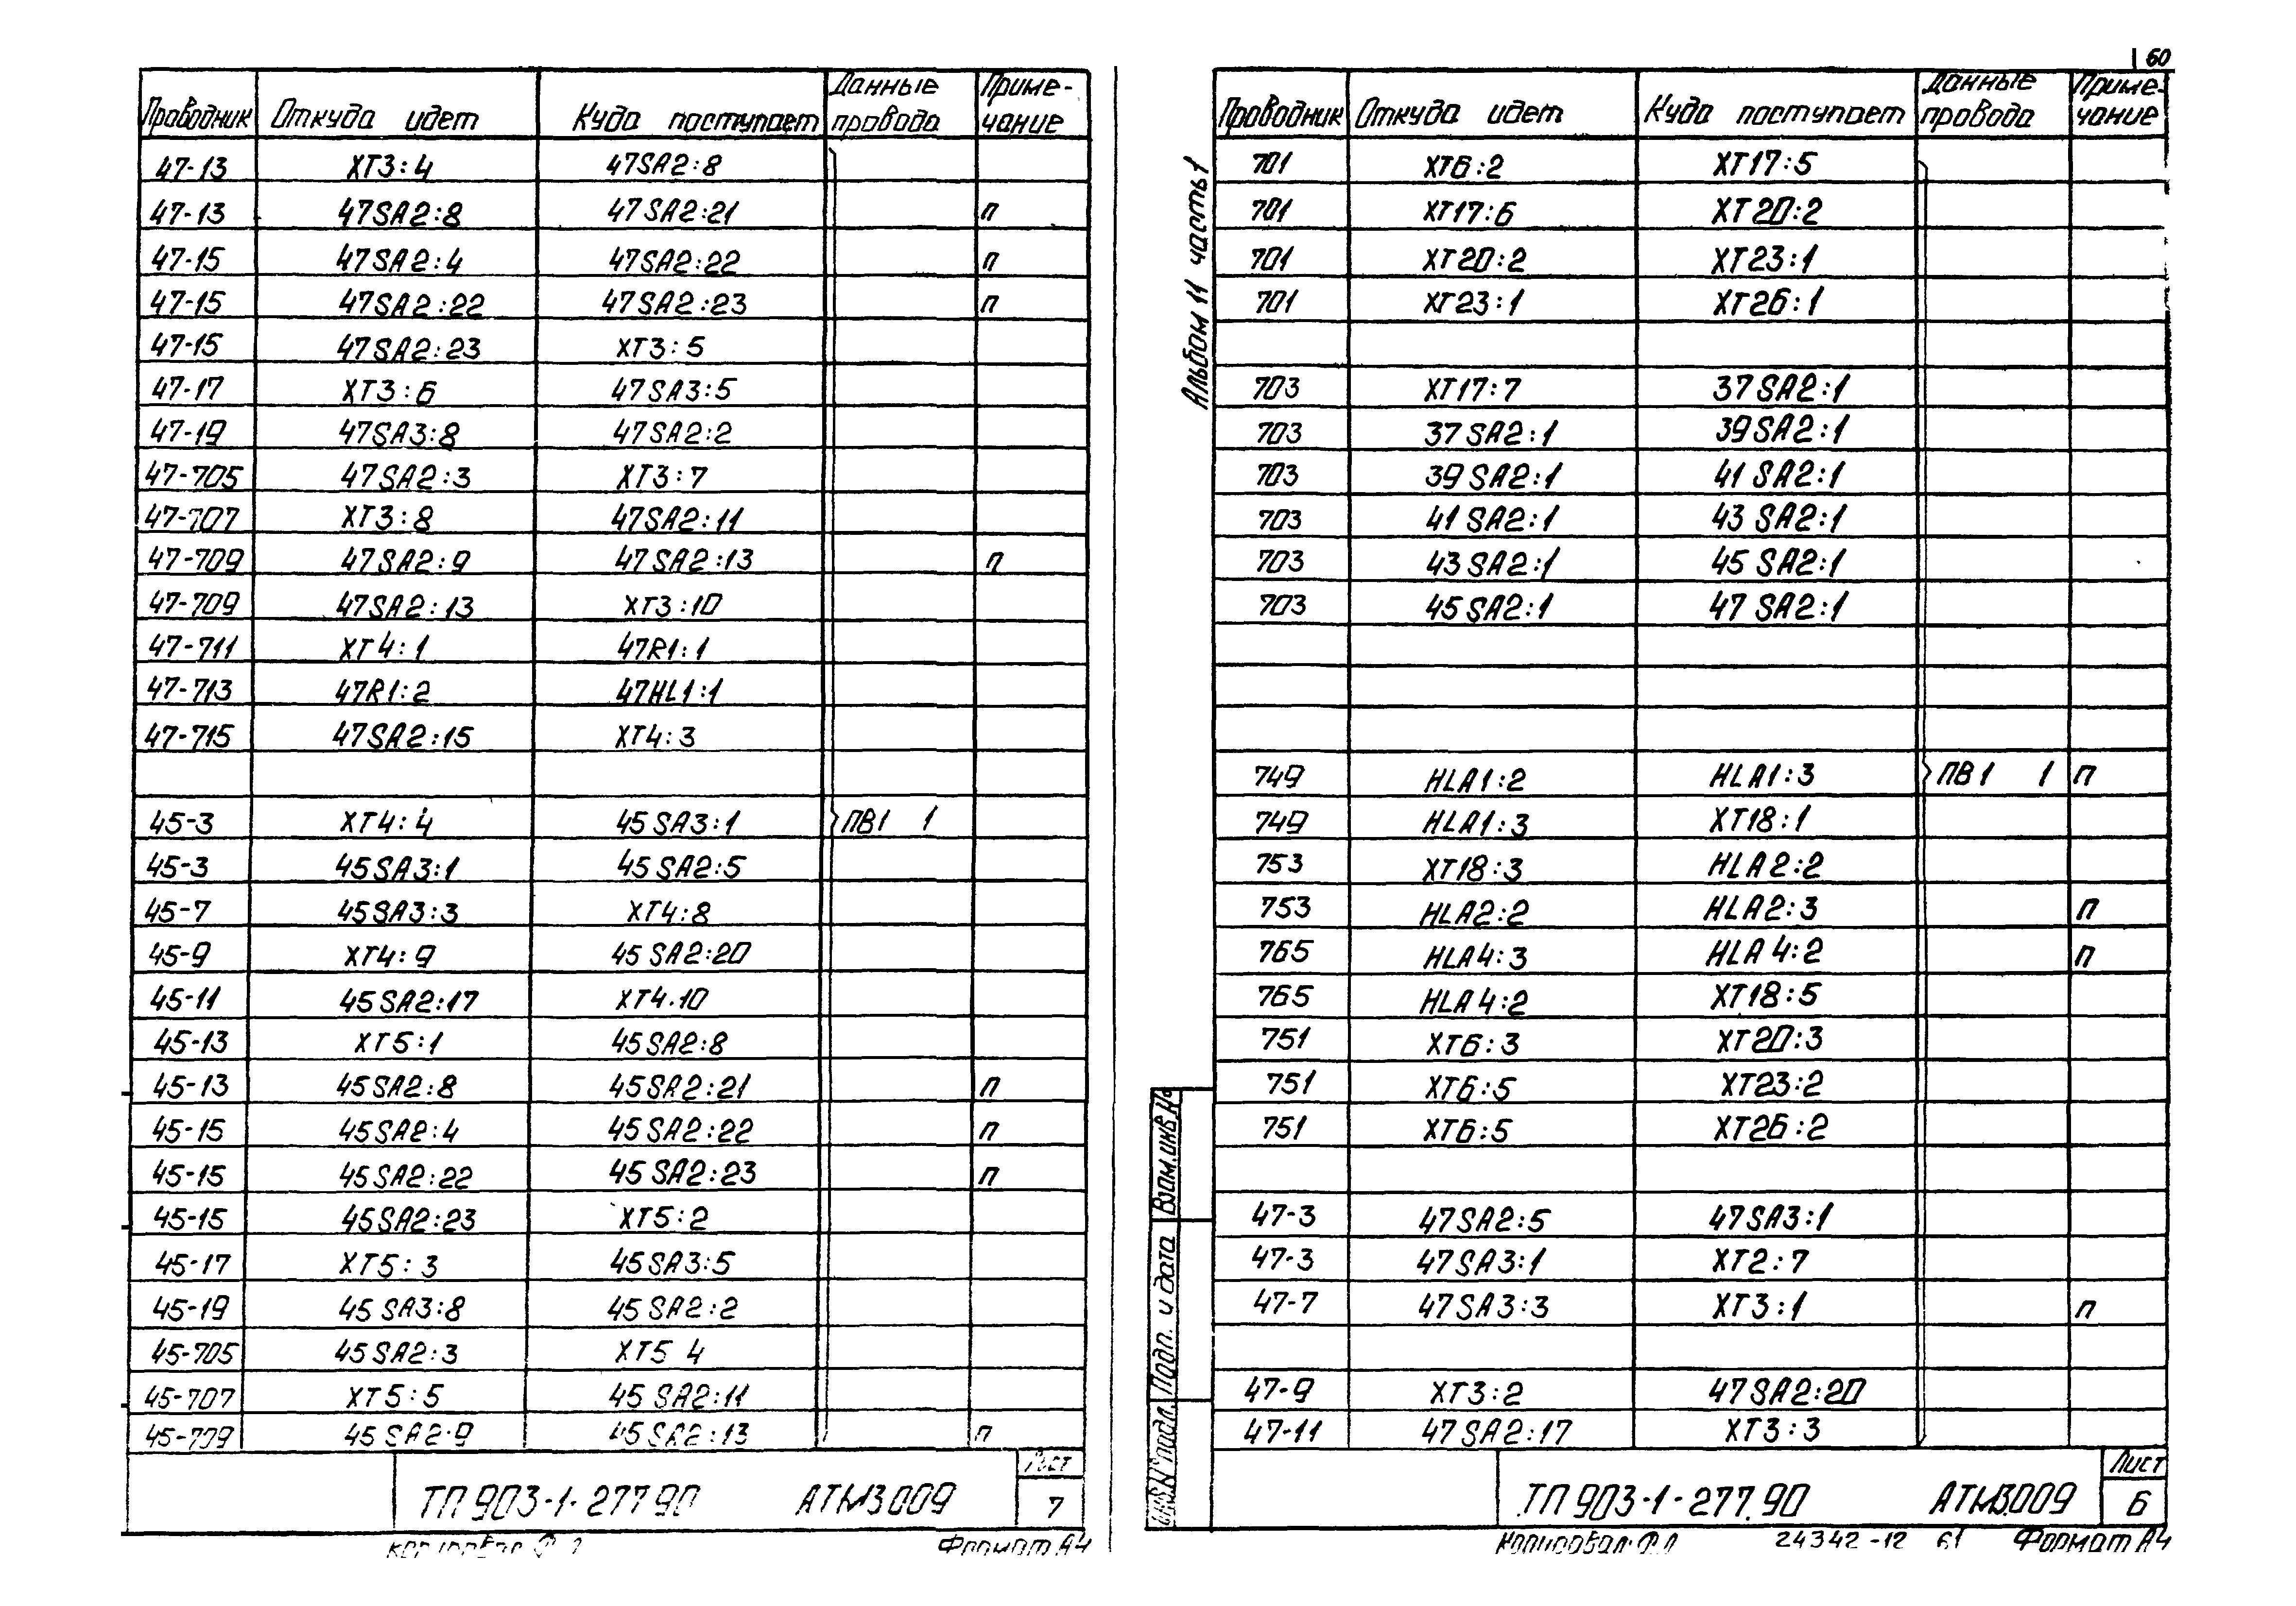 Проводник Откуда идет Куда поступает Данные провода Приме-чание
47-13 XT3:4 47SA2:8
47-13 47SA2:8 47SA2:21 п
47-15 47SA2:4 47SA2:22 п
47-15 47SA2:22 47SA2:23 п
47-15 47SA2:23 XT3:5
47-17 XT3:6 47SA3:5
47-19 47SA3:8 47SA2:2
47-705 47SA2:3 XT3:7
47-707 XT3:8 47SA2:11
47-709 47SA2:9 47SA2:13 п
47-709 47SA2:13 XT3:10
47-711 XT4:1 47R1:1
47-713 47R1:2 47HL1:1
47-715 47SA2:15 XT4:3
45-3 XT4:4 45SA3:1 ПВ1 1
45-3 45SA3:1 45SA2:5
45-7 45SA3:3 XT4:8
45-9 XT4:9 45SA2:20
45-11 45SA2:17 XT4.10
45-13 XT5:1 45SA2:8
45-13 45SA2:8 45SA2:21 п
45-15 45SA2:4 45SA2:22 п
45-15 45SA2:22 45SA2:23 п
45-15 45SA2:23 XT5:2
45-17 XT5:3 45SA3:5
45-19 45SA3:8 45SA2:2
45-705 45SA2:3 XT5 4
45-707 XT5:5 45SA2:11
45-709 45SA2:9 45SA2:13 п
ТП 903-1-277.90 АТМ3.009 Лист 7
Копировал Формат А4
60
Альбом 11 часть 1
Проводник Откуда идет Куда поступает Данные провода Приме-чание
701 XT6:2 XT17:5
701 XT17:6 XT20:2
701 XT20:2 XT23:1
701 XT23:1 XT26:1
703 XT17:7 37SA2:1
703 37SA2:1 39SA2:1
703 39SA2:1 41SA2:1
703 41SA2:1 43SA2:1
703 43SA2:1 45SA2:1
703 45SA2:1 47SA2:1
749 HLA1:2 HLA1:3 ПВ1 1 п
749 HLA1:3 XT18:1
753 XT18:3 HLA2:2
753 HLA2:2 HLA2:3 п
765 HLA4:3 HLA4:2 п
765 HLA4:2 XT18:5
751 XT6:3 XT20:3
751 XT6:5 XT23:2
751 XT6:5 XT26:2
47-3 47SA2:5 47SA3:1
47-3 47SA3:1 XT2:7
47-7 47SA3:3 XT3:1 п
47-9 XT3:2 47SA2:20
47-11 47SA2:17 XT3:3
Взам.инв.№
Подп. и дата
Инв.№ подл.
ТП 903-1-277.90 АТМ3.009 Лист 6
Копировал: 24342-12 61 Формат А4